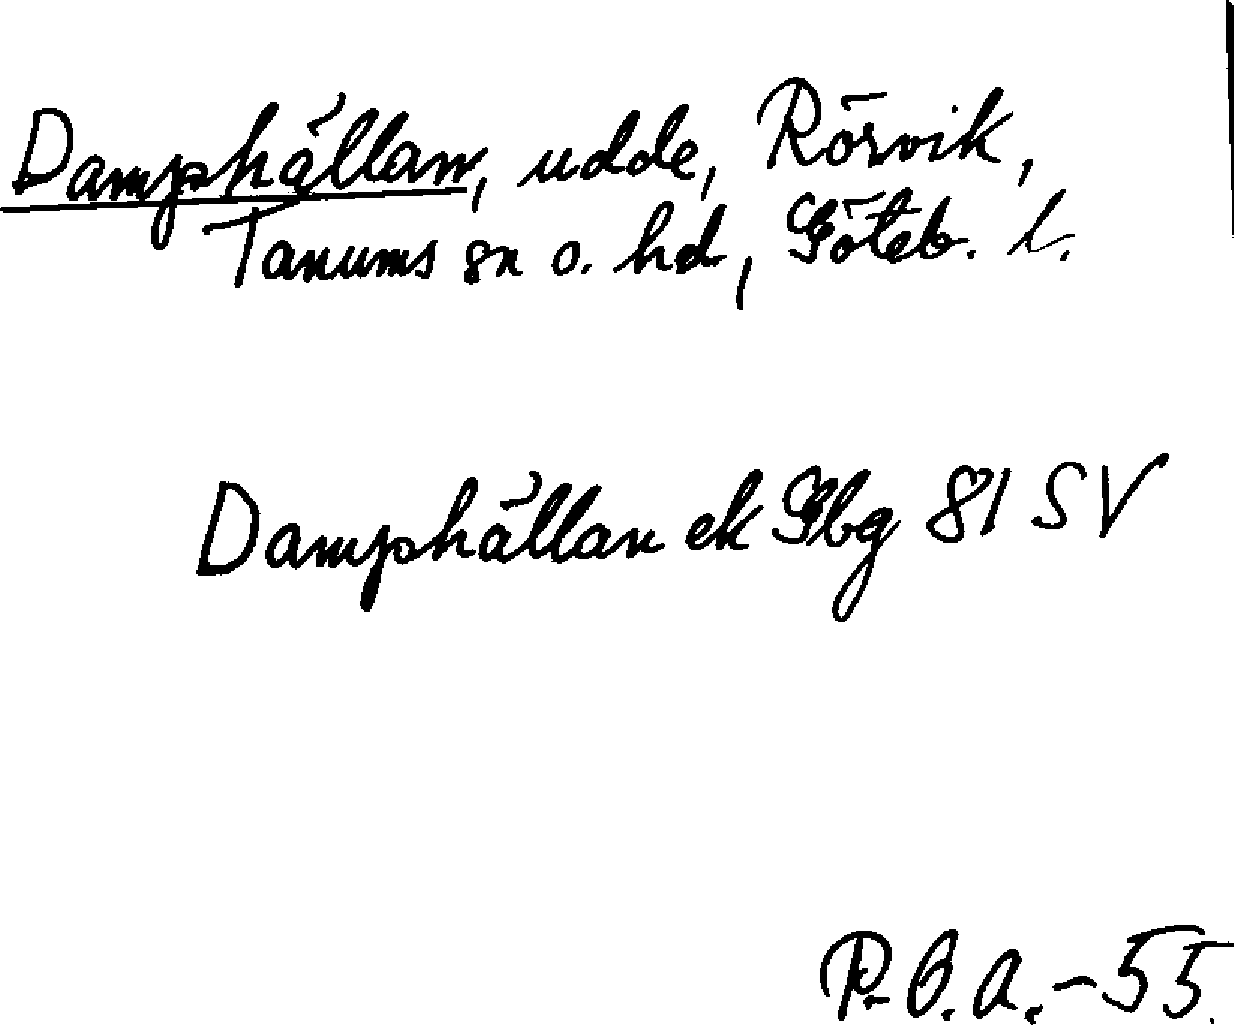 Damphällan, udde, Rörvik,
Tanums sn o. hd, Göteb. l.
Damphällan ek Gbg 81 SV
R.O.A.-55.